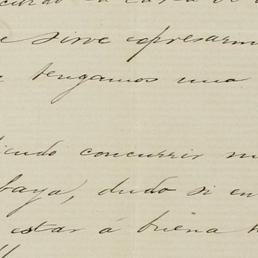 sirve espresarm
tengamos una
iendo concurrir m
baya, dudo si en
estar á buena h